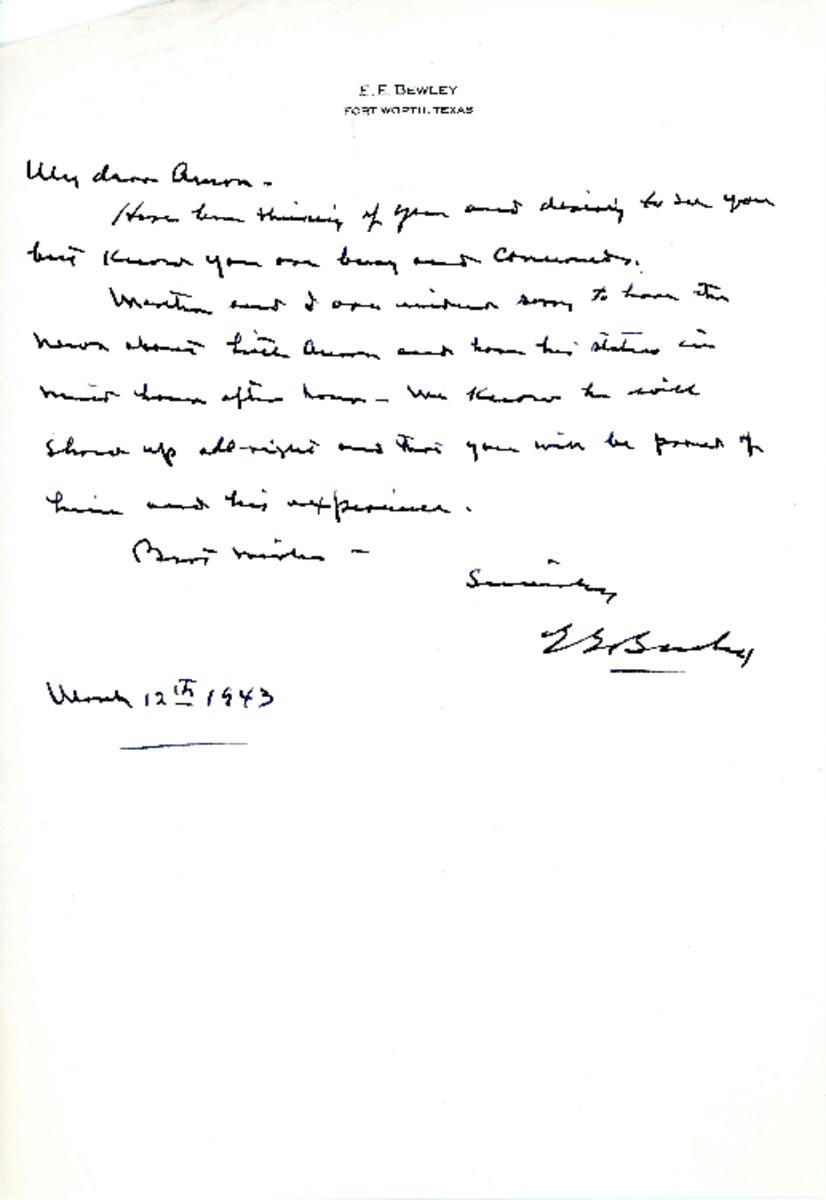 E. E. BEWLEY
FORT WORTH, TEXAS
My dear Amon -
Have been thinking of you and desiring to see you
but know you are busy and concerned.
and I are indeed sorry to have the
news about little Amon and have his status in
mind hour after hour - We know he will
show up all-right and that you will be proud of
him and his experience.
Best wishes -
Sincerely
E E Bewley
March 12th 1943